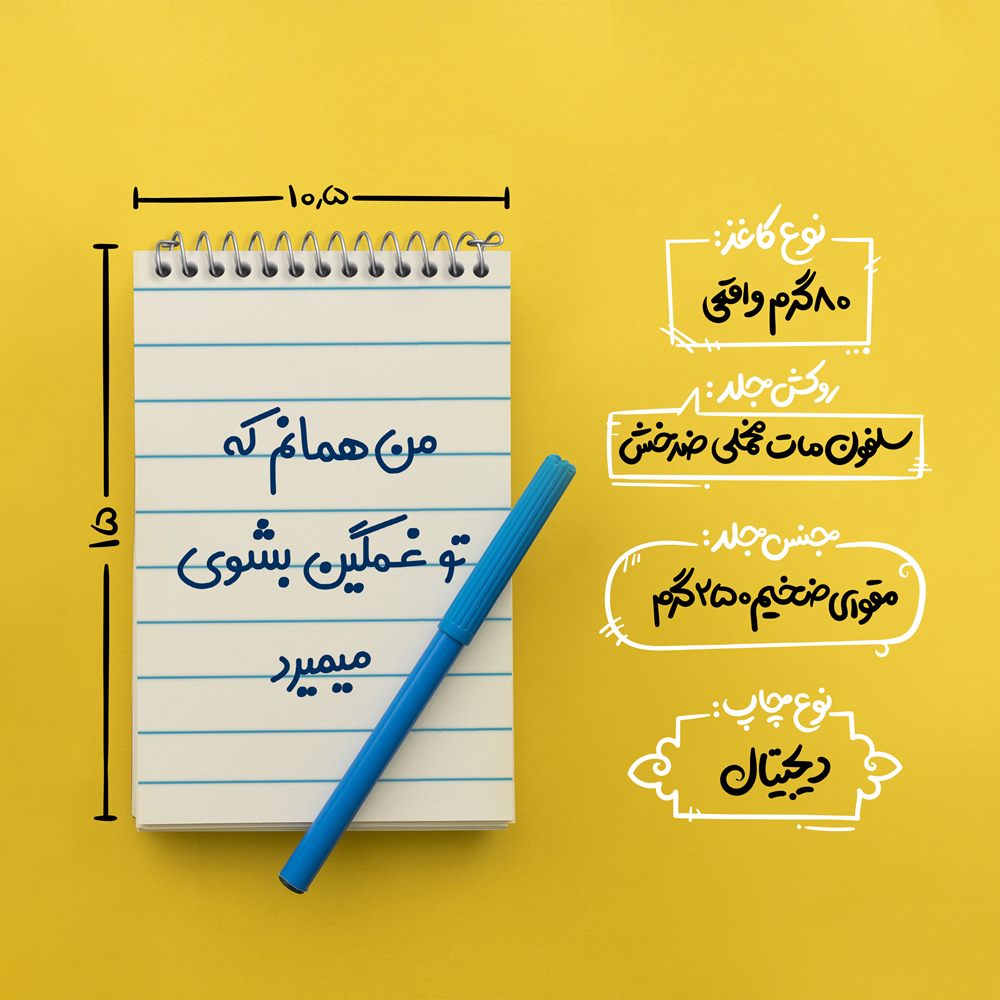 ۱۰,۵
۱۵
من همانم که
تو غمگین بشوی
میمیرد
نوع کاغذ:
۸۰گرم واقعی
روکش جلد:
سلفون مات مخملی ضدخش
جنس جلد:
مقوای ضخیم ۲۵۰گرم
نوع چاپ:
دیجیتال